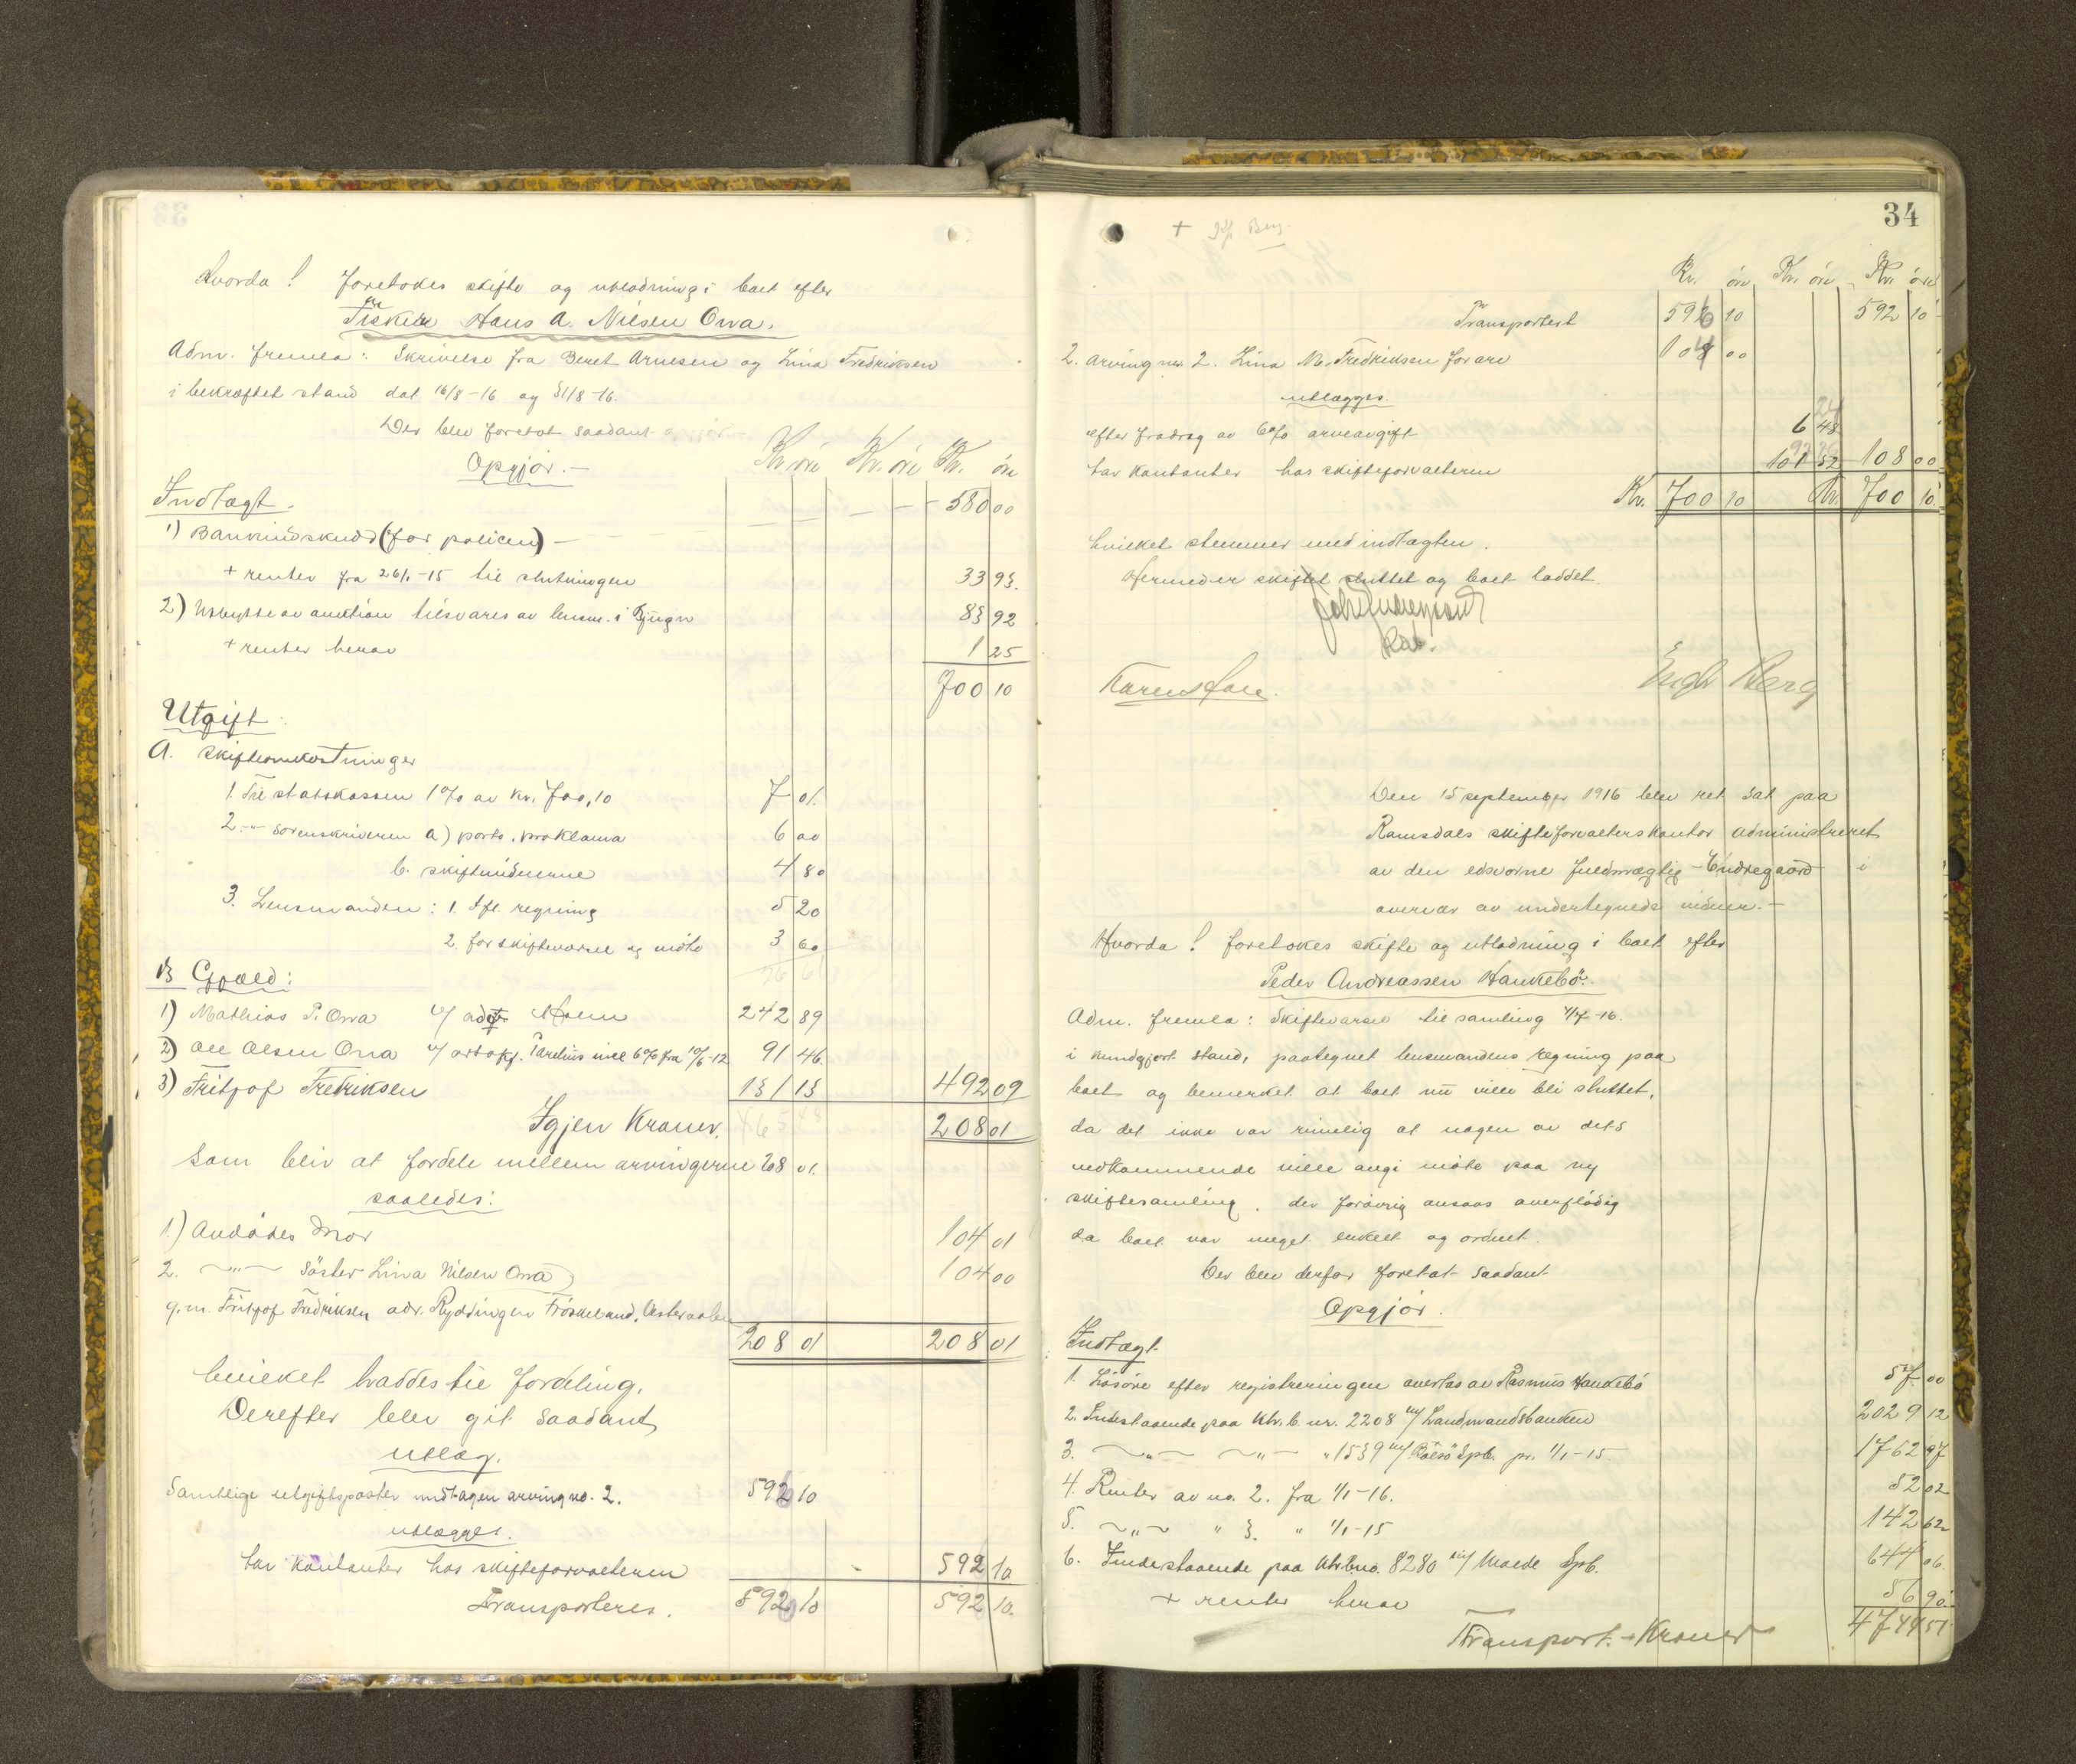 Hvorda! foretokes skifte og utlodning i boet efter
Fisker Hans A. Nilsen Orra.
Adm. fremla: Skrivelse fra Beret Arnesen og Lina Fredriksen
i bekræftet stand dat 16/8-16 og 31/8-16.
Der blev foretat saadant
Opgjör.-
Kr. öre Kr. öre Kr. öre
Indtægt.
1) Bankindskudd (for policen) - 580 00
+ renter fra 26/1-15 til slutningen 33 93.
2) Utbytte av auktion tilsvares av lensm. i Bjugn 83 92
+ renter herav 1 25
700 10
Utgift:
A. Skifteomkostninger
1. Til statskassen 1% av kr. 700,10 7 01.
2. -"- Sorenskriveren a) porto, proklama 6 00
b. skiftevidnerne 4 80
3. Lensmanden: 1. ifl. regning 5 20
2. for skiftevarsel og möte 3 60
26 61
B Gjæld:
1) Mathias P. Orra v/ adv. Holm 242 89
2) Ole Olsen Orra v/ Parelius incl 6% fra 10/6-12 91 46.
3) Fritjof Fredriksen 131 13 492 09
Igjen Kroner. 208 01
som bliv at fordele mellem arvingerne 208 01.
saaledes:
1.) Avdödes Mor 104 01
2. -"- Söster Lina Nilsen Orra 104 00
g.m. Fritjof Fredriksen adr. Ryddingen Fröskeland, Vesteraalen
208 01 208 01
hvilket haddes til fordeling.
Derefter blev git saadant
utlæg.
Samtlige utgiftsposter undtagen arving no. 2. 592 10
utlægges.
tar kontanter hos skifteforvalteren 592 10
Transporteres. 592 10 592 10.
34
+ Berg.
Kr. öre Kr. öre Kr. öre
Transportert 592 10 592 10
2. Arving nr. 2. Lina M. Fredriksen for arv 108 00
utlægges.
efter fradrag av 6% arveavgift 6 48
tar kontanter hos skifteforvalteren 101 52 108 00
Kr. 700 10 Kr. 700 10.
hvilket stemmer med indtægten.
Hermed er skiftet sluttet og boet loddet.
Karen
Berg
Den 15 september 1916 blev ret sat paa
Romsdals skifteforvalterskontor administreret
av den edsvorne fuldmægtig Endregaard i
overvær av undertegnede vidner.-
Hvorda! foretokes skifte og utlodning i boet efter
Peder Andreassen Hankebö.
Adm. fremla: Skiftevarsel til samling 4/7-16.
i kundgjort stand, paategnet lensmandens regning paa
boet og bemerket at boet nu ville bli sluttet,
da det ikke var rimelig at nogen av dets
vedkommende ville angi möte paa ny
skiftesamling, der forövrig ansaas overflödig
da boet var meget enkelt og ordnet.
Der blev derfor foretat saadant
Opgjör.
Indtægt.
1. Lösöre efter registreringen overtas av Rasmus Hankebö 57 00
2. Indestaaende paa Ktr.b. nr. 2208 m/ Landmandsbanken 2029 12
3. -"- -"- " 1539 m/ Spb. pr. 1/1-15. 1762 97
4. Renter av no. 2. fra 1/1-16. 52 02
5. -"- " 3. " 1/1-15 142 62
6. Indestaaende paa Ktrb.no. 8280 m/ Molde Spb. 644 06
+ renter herav 56 90
Transport. - Kroner 4744 51